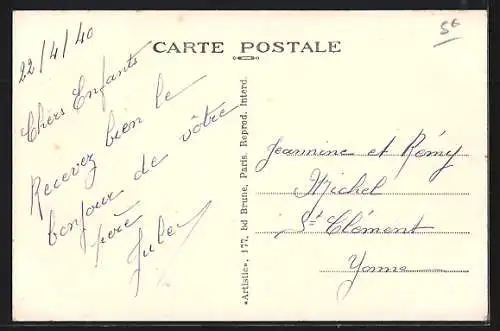 CARTE POSTALE
5€
22/4/40
Chers Enfants
Recevez bien le
bonjour de vôtre
père
Jules
«Artistic», 177, bd Brune, Paris. Reprod. Interd.
Jeannine et Rémy
Michel
St Clément
Yonne